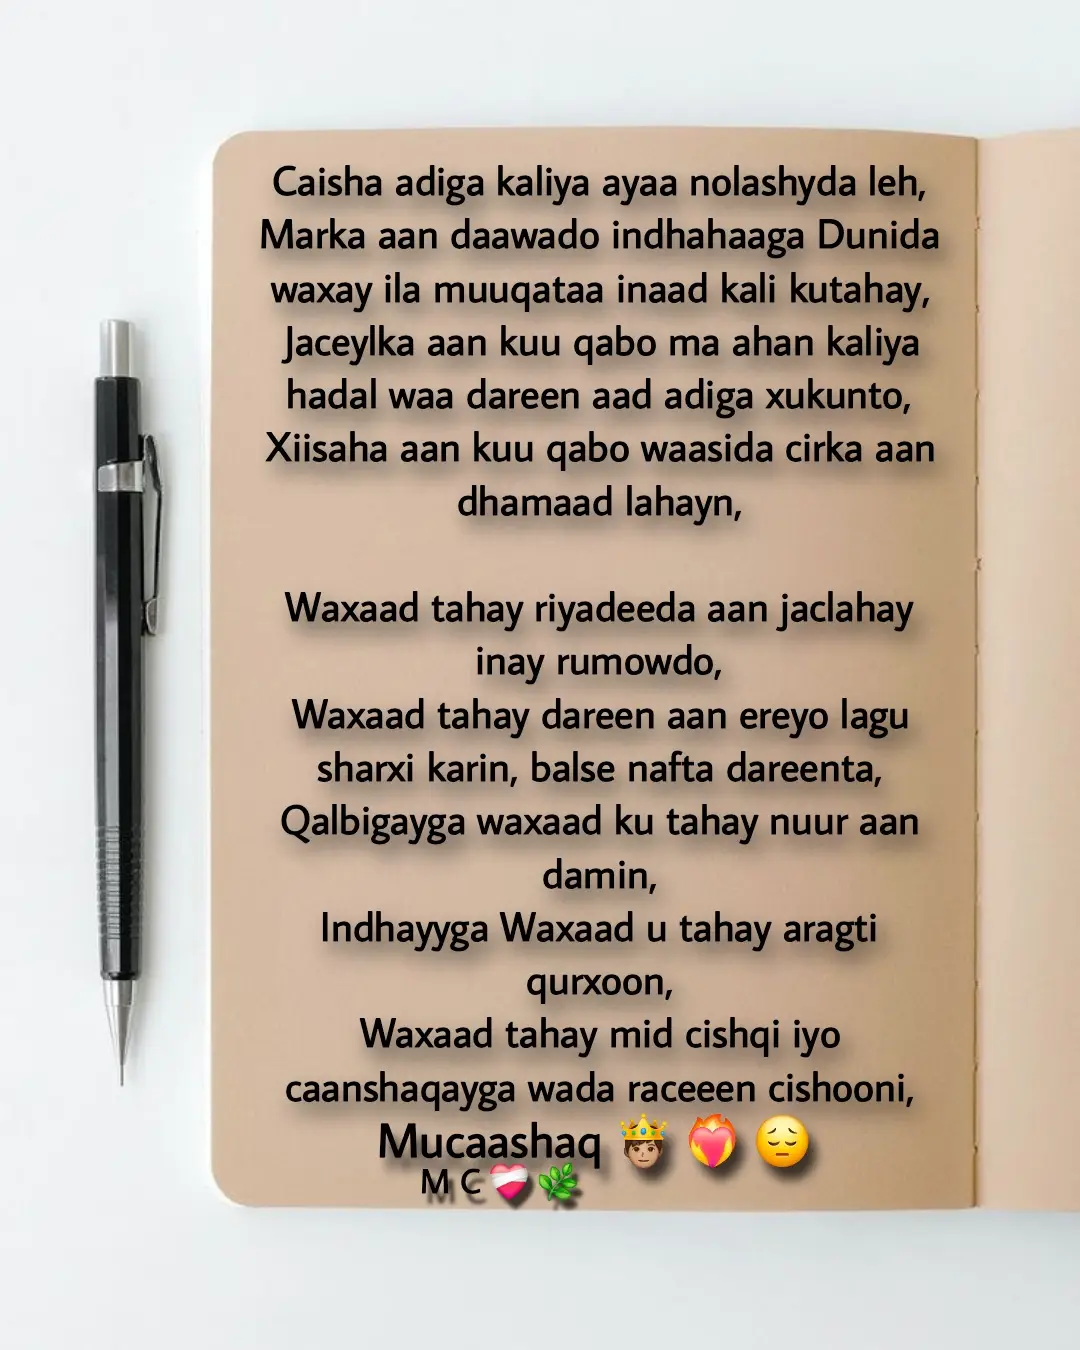 Caisha adiga kaliya ayaa nolashyda leh,
Marka aan daawado indhahaaga Dunida
waxay ila muuqataa inaad kali kutahay,
Jaceylka aan kuu qabo ma ahan kaliya
hadal waa dareen aad adiga xukunto,
Xiisaha aan kuu qabo waasida cirka aan
dhamaad lahayn,
Waxaad tahay riyadeeda aan jaclahay
inay rumowdo,
Waxaad tahay dareen aan ereyo lagu
sharxi karin, balse nafta dareenta,
Qalbigayga waxaad ku tahay nuur aan
damin,
Indhayyga Waxaad u tahay aragti
qurxoon,
Waxaad tahay mid cishqi iyo
caanshaqayga wada raceeen cishooni,
Mucaashaq 🤴🏽 ❤️‍🔥 😔
M C ❤️‍🩹 🌿